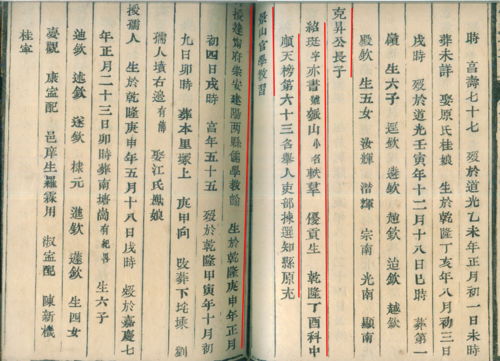 時 喜壽七十七 歿於道光乙未年正月初一日未時
葬未詳 娶原氏桂娘 生於乾隆丁亥年八月初三日
戌時 歿於道光壬寅年十二月十八日巳時 葬第一
嶺 生六子 欽 遴欽 欽 迫欽 越欽
殿欽 生五女 汝輝 潛輝 宗南 光南 顯南
克昇公長子
紹斑字亦書號山小名軼羣 優貢生 乾隆丁酉科中
天榜第六十三名舉人吏部揀選知縣原充
景山官學教習
授建甯府崇安建陽兩縣儒學教諭 生於乾隆庚申年正月
初四日戌時 享年五十五 歿於乾隆甲寅年十月初
九日卯時 葬本里塚上 庚甲向 改葬下 劉
孺人墳右邊有 娶江氏娘
孺人 生於乾隆庚申年五月十八日戌時 歿於嘉慶七
年正月二十三日卯時葬南塘有 生六子
欽 述欽 遂欽 棣元 進欽 蓮欽 生四女
觀 康室配 邑庠生羅霖用 淑室配 陳新機
桂室